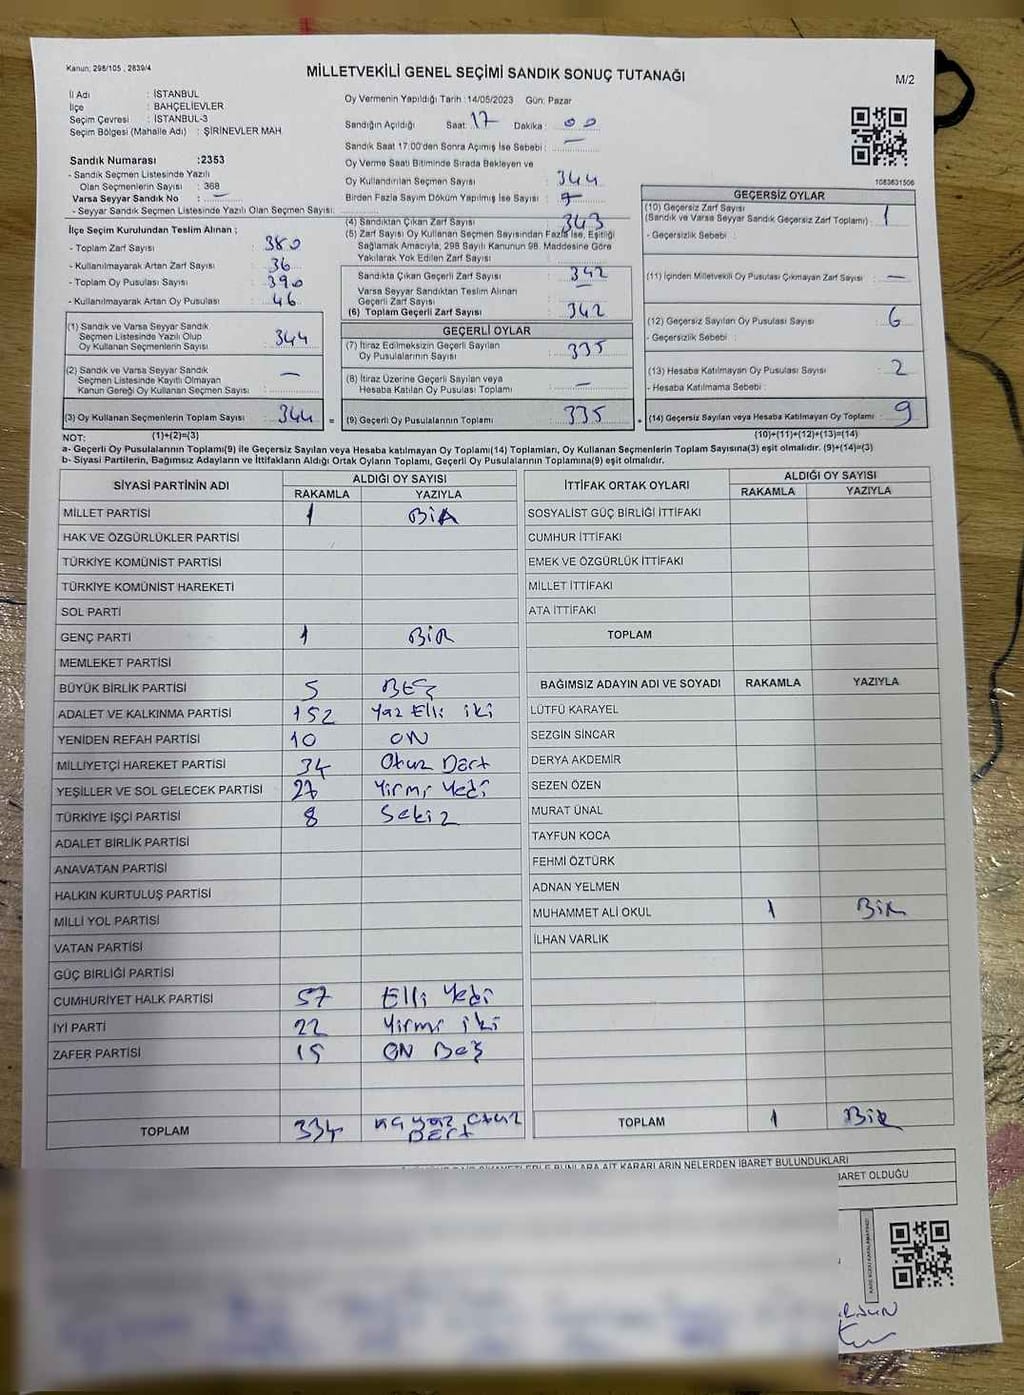 Kanun: 298/105 , 2839/4
MİLLETVEKİLİ GENEL SEÇİMİ SANDIK SONUÇ TUTANAĞI
M/2
İl Adı : İSTANBUL
İlçe : BAHÇELİEVLER
Seçim Çevresi : İSTANBUL-3
Seçim Bölgesi (Mahalle Adı) : ŞİRİNEVLER MAH
Sandık Numarası :2353
- Sandık Seçmen Listesinde Yazılı
Olan Seçmenlerin Sayısı : 368
Varsa Seyyar Sandık No : —
- Seyyar Sandık Seçmen Listesinde Yazılı Olan Seçmen Sayısı:
İlçe Seçim Kurulundan Teslim Alınan ;
- Toplam Zarf Sayısı : 380
- Kullanılmayarak Artan Zarf Sayısı : 36
- Toplam Oy Pusulası Sayısı : 390
- Kullanılmayarak Artan Oy Pusulası : 46
(1) Sandık ve Varsa Seyyar Sandık
Seçmen Listesinde Yazılı Olup
Oy Kullanan Seçmenlerin Sayısı : 344
(2) Sandık ve Varsa Seyyar Sandık
Seçmen Listesinde Kayıtlı Olmayan
Kanun Gereği Oy Kullanan Seçmen Sayısı : —
(3) Oy Kullanan Seçmenlerin Toplam Sayısı : 344
Oy Vermenin Yapıldığı Tarih : 14/05/2023 Gün: Pazar
Sandığın Açıldığı Saat: 17 Dakika : 00
Sandık Saat 17:00'den Sonra Açımış İse Sebebi : —
Oy Verme Saati Bitiminde Sırada Bekleyen ve
Oy Kullandırılan Seçmen Sayısı : 344
Birden Fazla Sayım Döküm Yapılmış İse Sayısı :
(4) Sandıktan Çıkan Zarf Sayısı : 343
(5) Zarf Sayısı Oy Kullanan Seçmen Sayısından Fazla İse, Eşitliği
Sağlamak Amacıyla, 298 Sayılı Kanunun 98. Maddesine Göre
Yakılarak Yok Edilen Zarf Sayısı :
Sandıkta Çıkan Geçerli Zarf Sayısı : 342
Varsa Seyyar Sandıktan Teslim Alınan
Geçerli Zarf Sayısı : —
(6) Toplam Geçerli Zarf Sayısı : 342
GEÇERLİ OYLAR
(7) İtiraz Edilmeksizin Geçerli Sayılan
Oy Pusulalarının Sayısı : 335
(8) İtiraz Üzerine Geçerli Sayılan veya
Hesaba Katılan Oy Pusulası Toplamı : —
(9) Geçerli Oy Pusulalarının Toplamı : 335
1083631506
GEÇERSİZ OYLAR
(10) Geçersiz Zarf Sayısı
(Sandık ve Varsa Seyyar Sandık Geçersiz Zarf Toplamı) : 1
- Geçersizlik Sebebi :
(11) İçinden Milletvekili Oy Pusulası Çıkmayan Zarf Sayısı : —
(12) Geçersiz Sayılan Oy Pusulası Sayısı : 6
- Geçersizlik Sebebi :
(13) Hesaba Katılmayan Oy Pusulası Sayısı : 2
- Hesaba Katılmama Sebebi :
(14) Geçersiz Sayılan veya Hesaba Katılmayan Oy Toplamı : 9
NOT: (1)+(2)=(3) (10)+(11)+(12)+(13)=(14)
a- Geçerli Oy Pusulalarının Toplamı(9) ile Geçersiz Sayılan veya Hesaba katılmayan Oy Toplamı(14) Toplamları, Oy Kullanan Seçmenlerin Toplam Sayısına(3) eşit olmalıdır. (9)+(14)=(3)
b- Siyasi Partilerin, Bağımsız Adayların ve İttifakların Aldığı Ortak Oyların Toplamı, Geçerli Oy Pusulalarının Toplamına(9) eşit olmalıdır.
SİYASİ PARTİNİN ADI ALDIĞI OY SAYISI
RAKAMLA YAZIYLA
MİLLET PARTİSİ 1 BİR
HAK VE ÖZGÜRLÜKLER PARTİSİ
TÜRKİYE KOMÜNİST PARTİSİ
TÜRKİYE KOMÜNİST HAREKETİ
SOL PARTİ
GENÇ PARTİ 1 BİR
MEMLEKET PARTİSİ
BÜYÜK BİRLİK PARTİSİ 5 BEŞ
ADALET VE KALKINMA PARTİSİ 152 Yüz Elli iki
YENİDEN REFAH PARTİSİ 10 ON
MİLLİYETÇİ HAREKET PARTİSİ 34 Otuz Dört
YEŞİLLER VE SOL GELECEK PARTİSİ 27 Yirmi Yedi
TÜRKİYE İŞÇİ PARTİSİ 8 Sekiz
ADALET BİRLİK PARTİSİ
ANAVATAN PARTİSİ
HALKIN KURTULUŞ PARTİSİ
MİLLİ YOL PARTİSİ
VATAN PARTİSİ
GÜÇ BİRLİĞİ PARTİSİ
CUMHURİYET HALK PARTİSİ 57 Elli Yedi
İYİ PARTİ 22 Yirmi iki
ZAFER PARTİSİ 15 ON Beş
TOPLAM 334 üç yüz otuz
Dört
İTTİFAK ORTAK OYLARI ALDIĞI OY SAYISI
RAKAMLA YAZIYLA
SOSYALİST GÜÇ BİRLİĞİ İTTİFAKI
CUMHUR İTTİFAKI
EMEK VE ÖZGÜRLÜK İTTİFAKI
MİLLET İTTİFAKI
ATA İTTİFAKI
TOPLAM
BAĞIMSIZ ADAYIN ADI VE SOYADI RAKAMLA YAZIYLA
LÜTFÜ KARAYEL
SEZGİN SİNCAR
DERYA AKDEMİR
SEZEN ÖZEN
MURAT ÜNAL
TAYFUN KOCA
FEHMİ ÖZTÜRK
ADNAN YELMEN
MUHAMMET ALİ OKUL 1 BİR
İLHAN VARLIK
TOPLAM 1 BİR
BUNLARA AİT KARARLARIN NELERDEN İBARET BULUNDUKLARI
BARET OLDUĞU